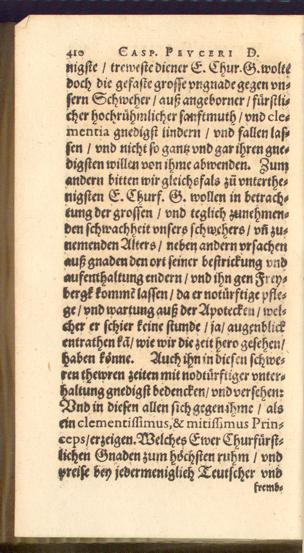 410 CASP. PEVCERI D.
nigste / treweste diener E. Chur. G. wolte
doch die gefaste grosse vngnade gegen vn-
sern Schweher / auß angeborner / fürstli-
cher hochrühmlicher sanfftmuth / vnd cle-
mentia gnedigst lindern / vnd fallen las-
sen / vnd nicht so gantz vnd gar ihren gne-
digsten willen von ihme abwenden. Zum
andern bitten wir gleichsfals zů vnterthe-
nigsten E. Churf. G. wollen in betrach-
tung der grossen / vnd teglich zunehmen-
den schwachheit vnsers schwehers / vñ zu-
nemenden Alters / neben andern vrsachen
auß gnaden den ort seiner bestrickung vnd
auffenthaltung endern / vnd ihn gen Frey-
bergk kommẽ lassen / da er notürftige pfle-
ge / vnd wartung auß der Apotecken / wel-
cher er schier keine stunde / ja / augenblick
entrathen kã / wie wir die zeit hero gesehen /
haben könne. Auch ihn in diesen schwe-
ren thewren zeiten mit nodtürftiger vnter-
haltung gnedigst bedencken / vnd versehen:
Vnd in diesen allen sich gegen ihme / als
ein clementissimus, & mitissimus Prin-
ceps / erzeigen. Welches Ewer Churfürst-
lichen Gnaden zum höchsten ruhm / vnd
preise bey jedermeniglich Teutscher vnd
fremb-